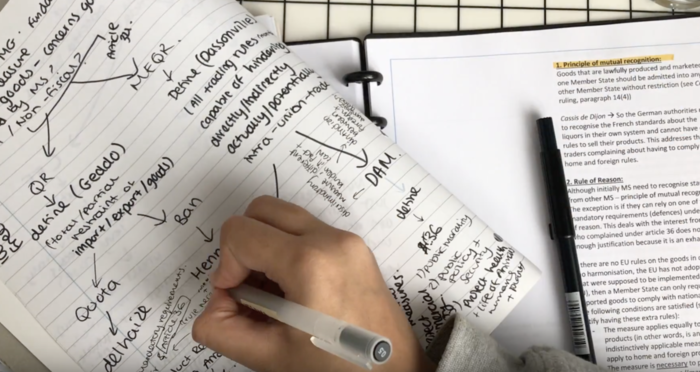 goods - concerns
by MS?
/ Non-fiscal?
Article
34
MEQR.
define (Dassonville)
(All trading rules
capable of hindering
directly/indirectly
actually/potentially
intra-union trade
QR
define (Geddo)
total/partial
restraint on
import/export/goods)
Quota
Ban
Henn
DAM.
define
A.36
1) public morality
2) public
policy +
security
health
+ plants
1. Principle of mutual recognition:
Goods that are lawfully produced and marketed
one Member State should be admitted into any
other Member State without restriction (see
ruling, paragraph 14(4))
Cassis de Dijon → So the German authorities
to recognise the French standards about the
liquors in their own system and cannot have
rules to sell their products. This addresses th
traders complaining about having to comply
home and foreign rules.
2. Rule of Reason:
Although initially MS need to recognise sta
from other MS – principle of mutual recog
he exception is if they can rely on one of
mandatory requirements (defences) under
f reason. This deals with the interest fro
complained under article 36 does no
nough justification because it is an exh
there are no EU rules on the goods in
o harmonisation, the EU has not adop
at were supposed to be implemented
, then a Member State can only req
ported goods to comply with nation
following conditions are satisfied (
ify having these extra rules):
The measure applies equally to
products (in other words, is an
indistinctively applicable mea
apply to home and foreign p
The measure is necessary to p